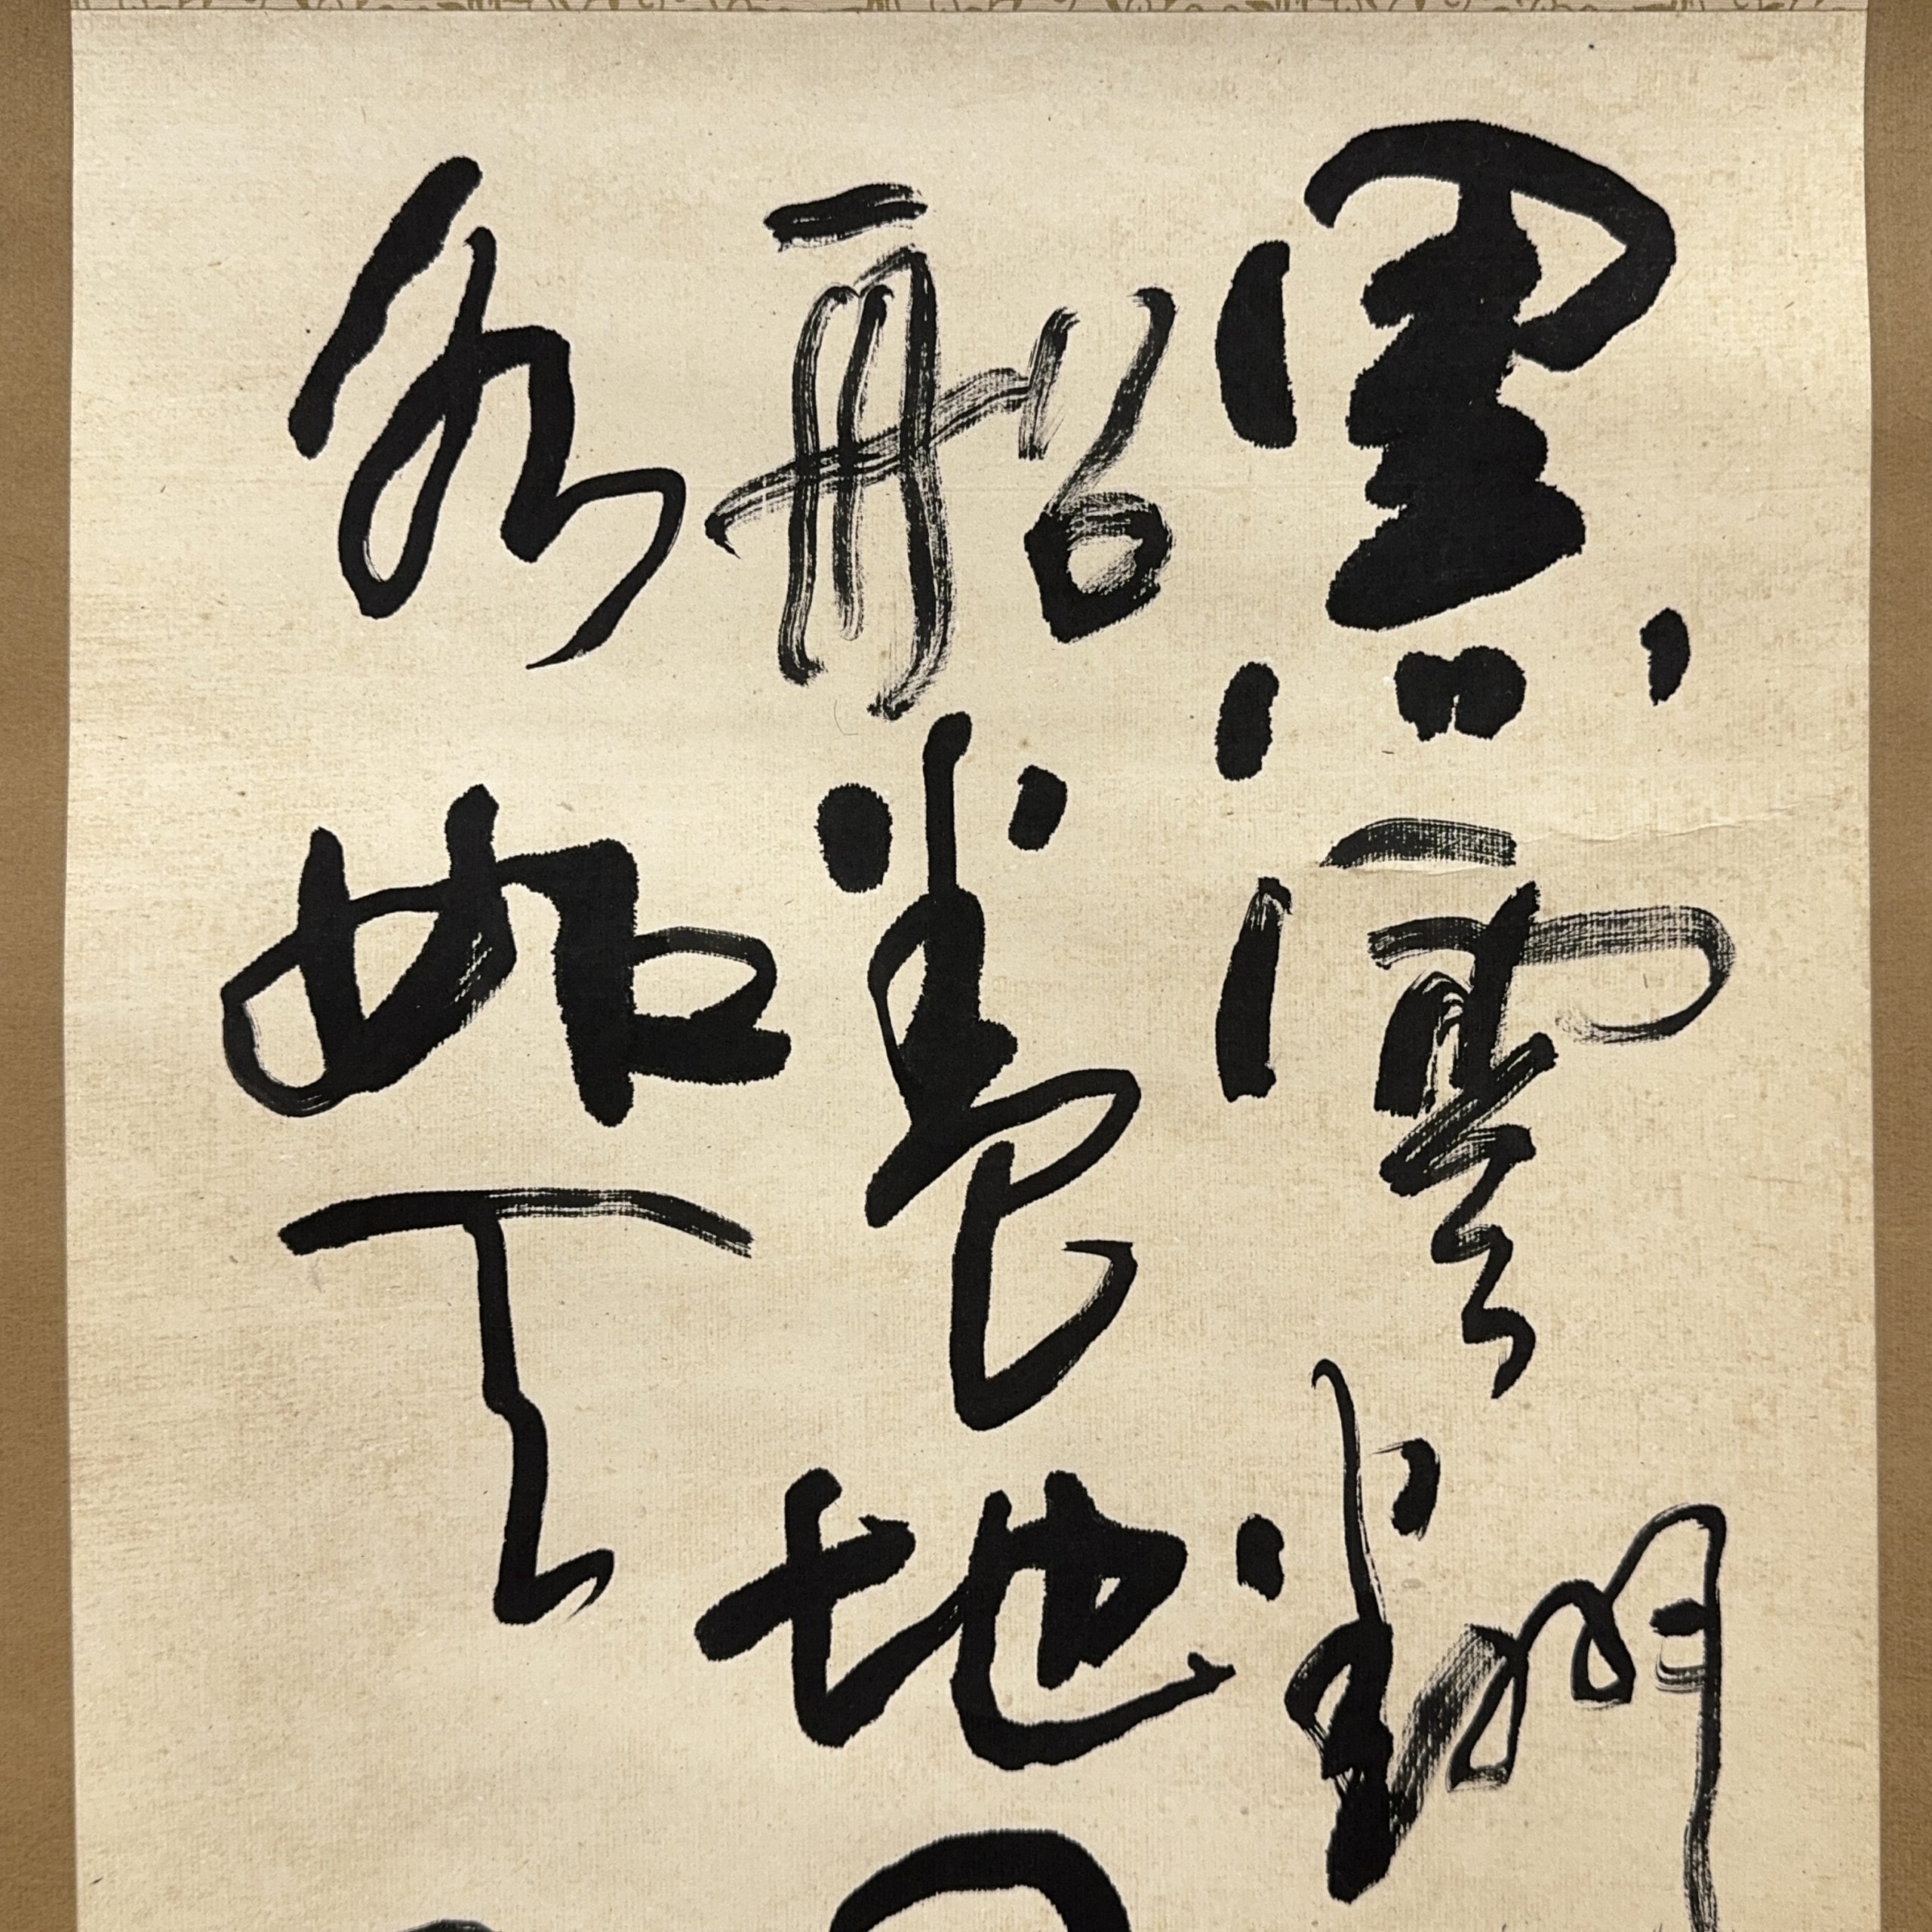 黑雲翻
船卷地
水如天